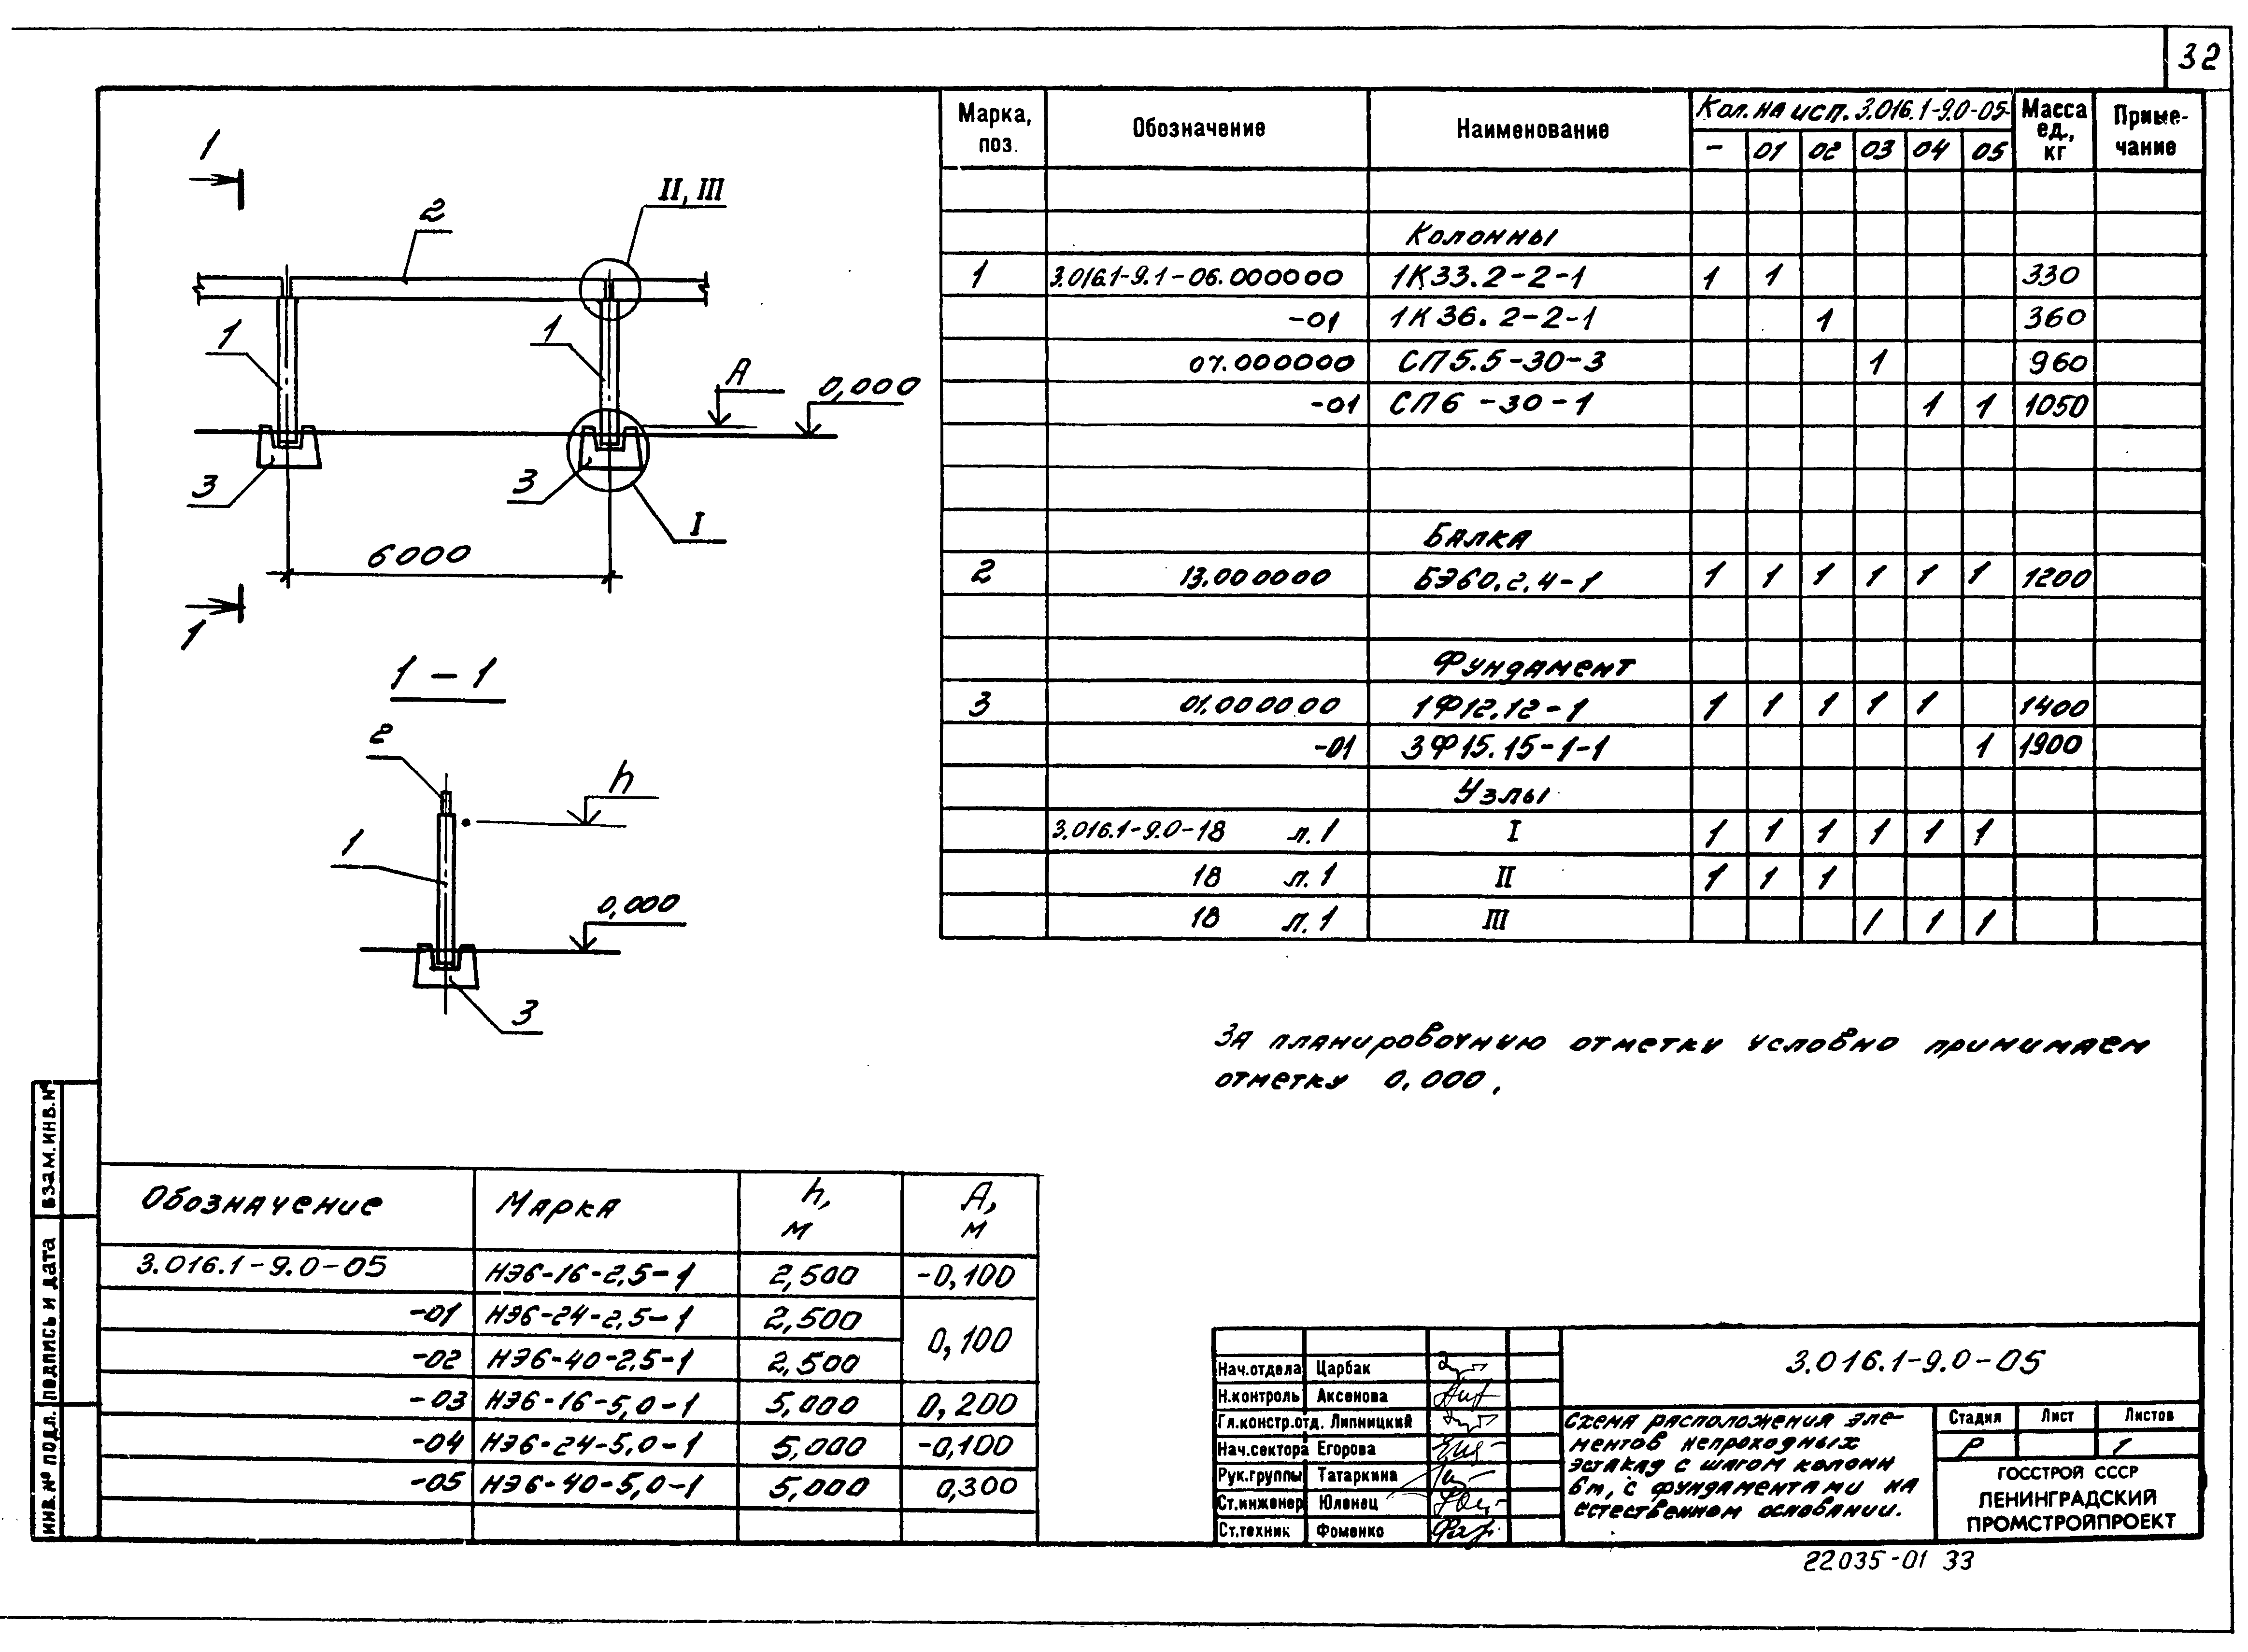 32
1
II, III
2
1
1
A
0,000
3
3
I
6000
1
1-1
2
h
1
0,000
3
Марка, поз. Обозначение Наименование Кол. на исп. 3.016.1-9.0-05- Масса ед., кг Приме-чание
- 01 02 03 04 05
Колонны
1 3.016.1-9.1-06.000000 1К33.2-2-1 1 1 330
-01 1К36.2-2-1 1 360
07.000000 СП5.5-30-3 1 960
-01 СП6-30-1 1 1 1050
Балка
2 13.000000 БЭ60.2.4-1 1 1 1 1 1 1 1200
Фундамент
3 01.000000 1Ф12.12-1 1 1 1 1 1 1400
-01 3Ф15.15-1-1 1 1900
Узлы
3.016.1-9.0-18 л.1 I 1 1 1 1 1 1
18 л.1 II 1 1 1
18 л.1 III 1 1 1
За планировочную отметку условно принимаем
отметку 0,000.
Обозначение Марка h, м A, м
3.016.1-9.0-05 НЭ6-16-2,5-1 2,500 -0,100
-01 НЭ6-24-2,5-1 2,500 0,100
-02 НЭ6-40-2,5-1 2,500
-03 НЭ6-16-5,0-1 5,000 0,200
-04 НЭ6-24-5,0-1 5,000 -0,100
-05 НЭ6-40-5,0-1 5,000 0,300
Взам. инв. №
Подпись и дата
Инв. № подл.
3.016.1-9.0-05
Нач.отдела Царбак
Н.контроль Аксенова
Гл.констр.отд. Липницкий
Нач.сектора Егорова
Рук.группы Татаркина
Ст.инженер Юленец
Ст.техник Фоменко
Схема расположения эле-
ментов непроходных
эстакад с шагом колонн
6м, с фундаментами на
естественном основании.
Стадия Лист Листов
Р 1
ГОССТРОЙ СССР
ЛЕНИНГРАДСКИЙ
ПРОМСТРОЙПРОЕКТ
22035-01 33